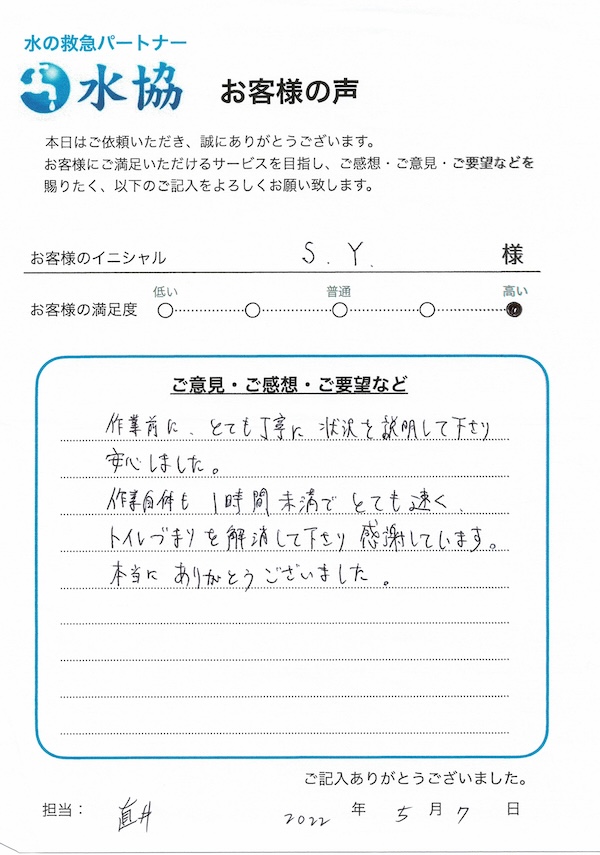 水の救急パートナー
水協 お客様の声
本日はご依頼いただき、誠にありがとうございます。
お客様にご満足いただけるサービスを目指し、ご感想・ご意見・ご要望などを
賜りたく、以下のご記入をよろしくお願い致します。
お客様のイニシャル S.Y. 様
低い 普通 高い
お客様の満足度
ご意見・ご感想・ご要望など
作業前に、とても丁寧に状況を説明して下さり
安心しました。
作業自体も1時間未満でとても速く、
トイレづまりを解消して下さり感謝しています。
本当にありがとうございました。
ご記入ありがとうございました。
担当: 直井 2022 年 5 月 7 日